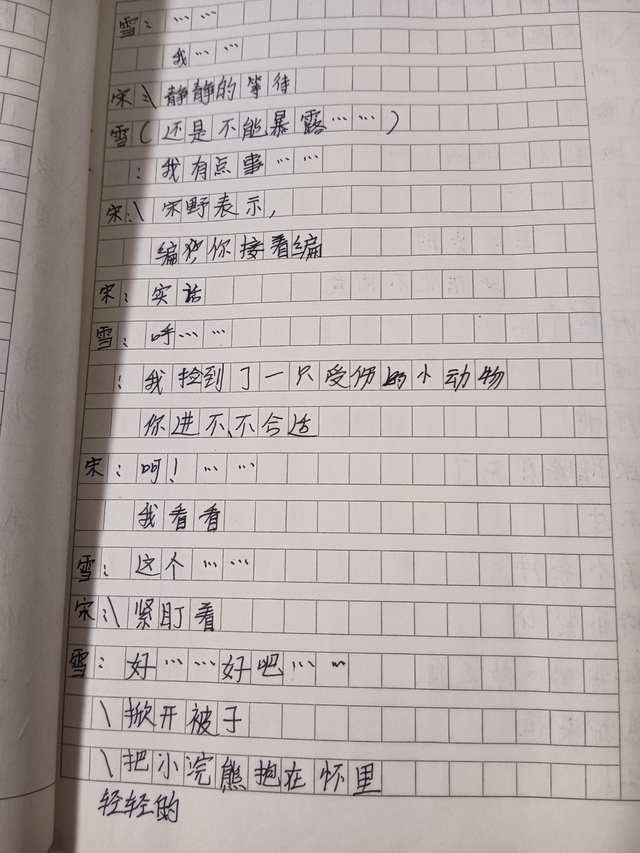 雪：……
我……
宋：\静静的等待
雪（还是不能暴露……）
：我有点事……
宋：\宋野表示，
编，你接着编
宋：实话
雪：呼……
：我捡到了一只受伤的小动物
你进不、不合适
宋：呵！……
我看看
雪：这个……
宋：\紧盯着
雪：好……好吧……
\掀开被子
\把小浣熊抱在怀里
轻轻的